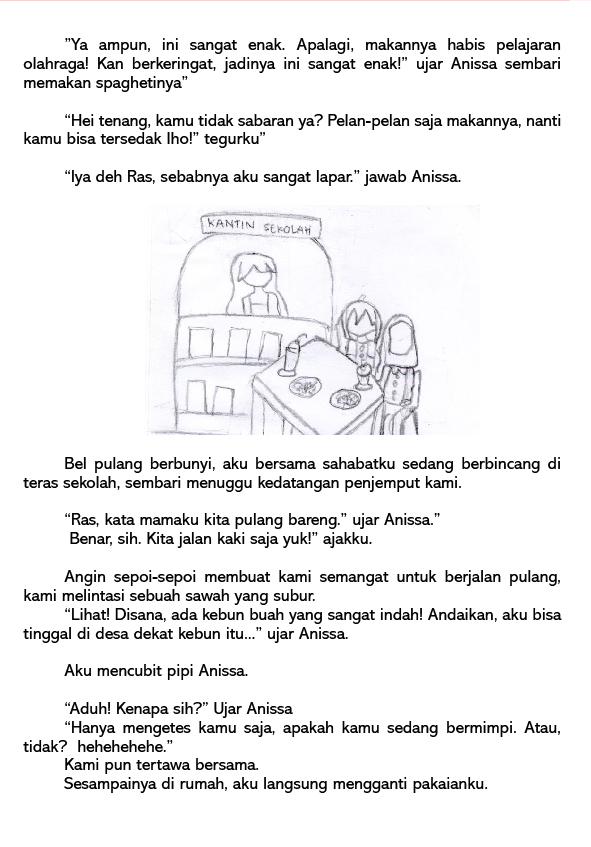 ”Ya ampun, ini sangat enak. Apalagi, makannya habis pelajaran
olahraga! Kan berkeringat, jadinya ini sangat enak!” ujar Anissa sembari
memakan spaghetinya”
“Hei tenang, kamu tidak sabaran ya? Pelan-pelan saja makannya, nanti
kamu bisa tersedak lho!” tegurku”
“Iya deh Ras, sebabnya aku sangat lapar.” jawab Anissa.
KANTIN SEKOLAH
Bel pulang berbunyi, aku bersama sahabatku sedang berbincang di
teras sekolah, sembari menuggu kedatangan penjemput kami.
“Ras, kata mamaku kita pulang bareng.” ujar Anissa.”
Benar, sih. Kita jalan kaki saja yuk!” ajakku.
Angin sepoi-sepoi membuat kami semangat untuk berjalan pulang,
kami melintasi sebuah sawah yang subur.
“Lihat! Disana, ada kebun buah yang sangat indah! Andaikan, aku bisa
tinggal di desa dekat kebun itu...” ujar Anissa.
Aku mencubit pipi Anissa.
“Aduh! Kenapa sih?” Ujar Anissa
“Hanya mengetes kamu saja, apakah kamu sedang bermimpi. Atau,
tidak? hehehehehe.”
Kami pun tertawa bersama.
Sesampainya di rumah, aku langsung mengganti pakaianku.